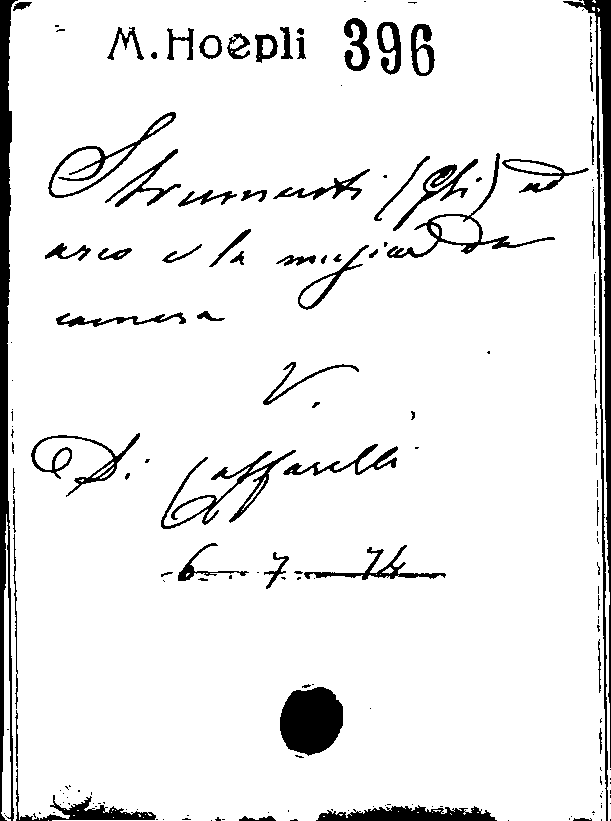 M. Hoepli 396
Strumenti (Gli) ad
arco e la musica da
camera
V.
Di Caffarelli
6 7 74